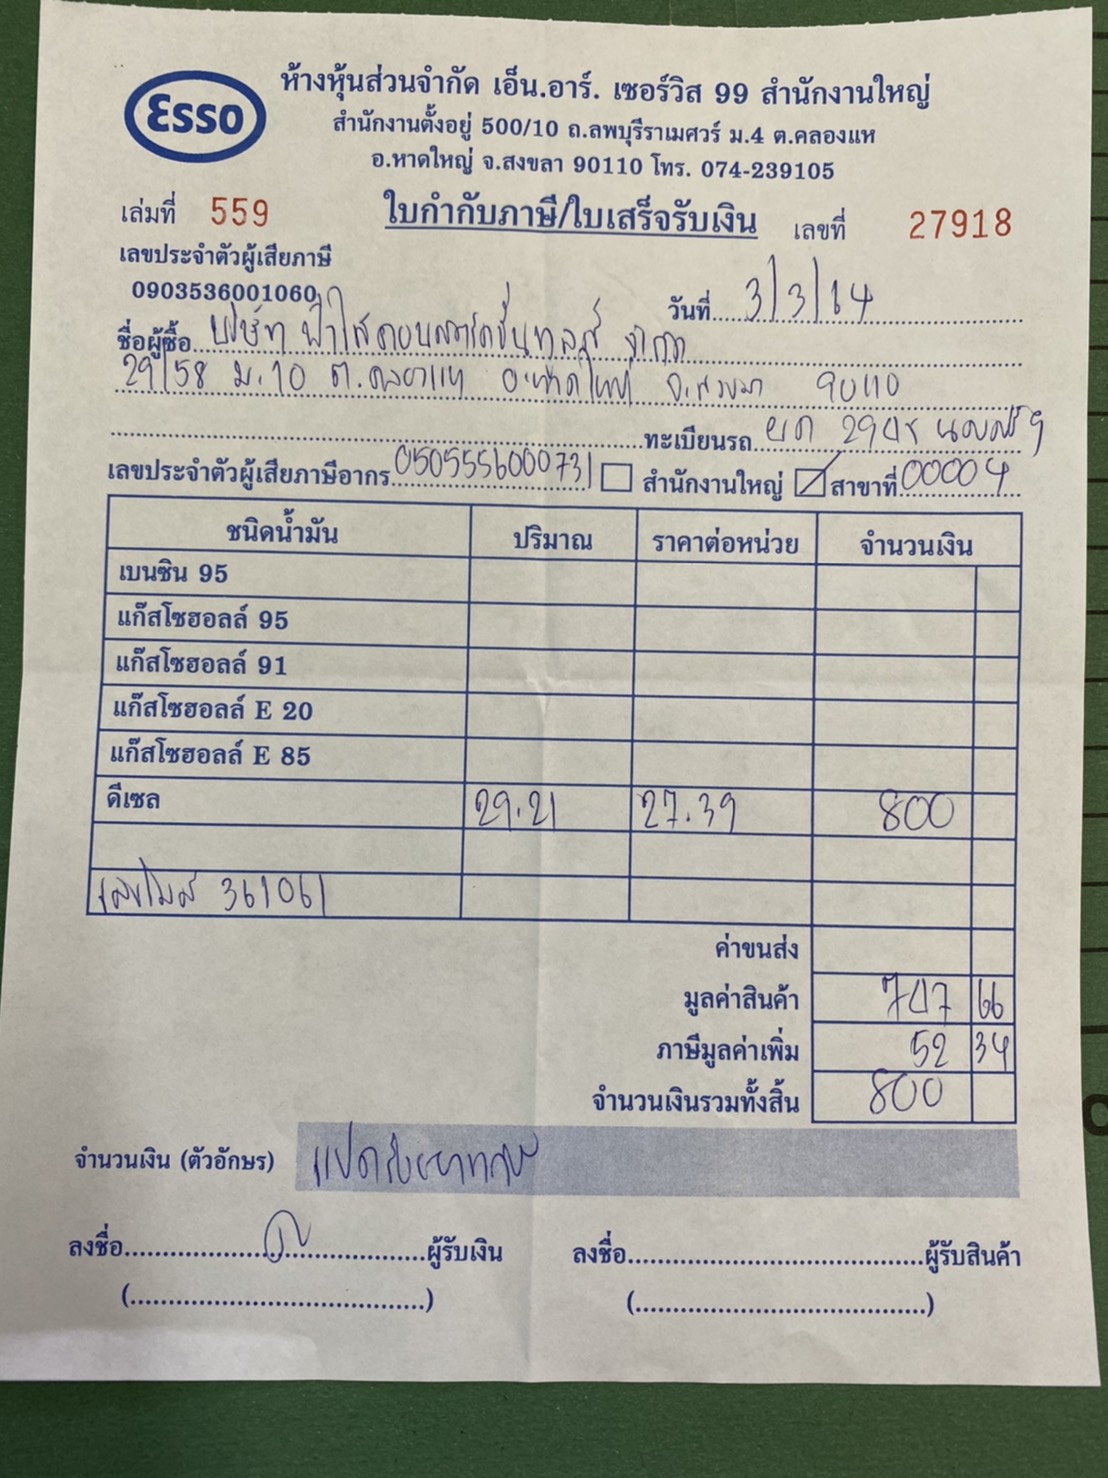 Esso
ห้างหุ้นส่วนจำกัด เอ็น.อาร์. เซอร์วิส 99 สำนักงานใหญ่
สำนักงานตั้งอยู่ 500/10 ถ.ลพบุรีราเมศวร์ ม.4 ต.คลองแห
อ.หาดใหญ่ จ.สงขลา 90110 โทร. 074-239105
เล่มที่ 559 ใบกำกับภาษี/ใบเสร็จรับเงิน เลขที่ 27918
เลขประจำตัวผู้เสียภาษี
0903536001060
วันที่ 3/3/64
ชื่อผู้ซื้อ บริษัท ฟ้าใสคอนสตรัคชั่นพลัส จำกัด
29/58 ม.10 ต.คลองแห อ.หาดใหญ่ จ.สงขลา 90110
ทะเบียนรถ
เลขประจำตัวผู้เสียภาษีอากร 0505556000731 สำนักงานใหญ่ สาขาที่ 00004
ชนิดน้ำมัน ปริมาณ ราคาต่อหน่วย จำนวนเงิน
เบนซิน 95
แก๊สโซฮอลล์ 95
แก๊สโซฮอลล์ 91
แก๊สโซฮอลล์ E 20
แก๊สโซฮอลล์ E 85
ดีเซล 29.21 27.39 800
เลขไมล์ 361061
ค่าขนส่ง
มูลค่าสินค้า 747 66
ภาษีมูลค่าเพิ่ม 52 34
จำนวนเงินรวมทั้งสิ้น 800
จำนวนเงิน (ตัวอักษร) แปดร้อยบาทถ้วน
ลงชื่อ ผู้รับเงิน ลงชื่อ ผู้รับสินค้า